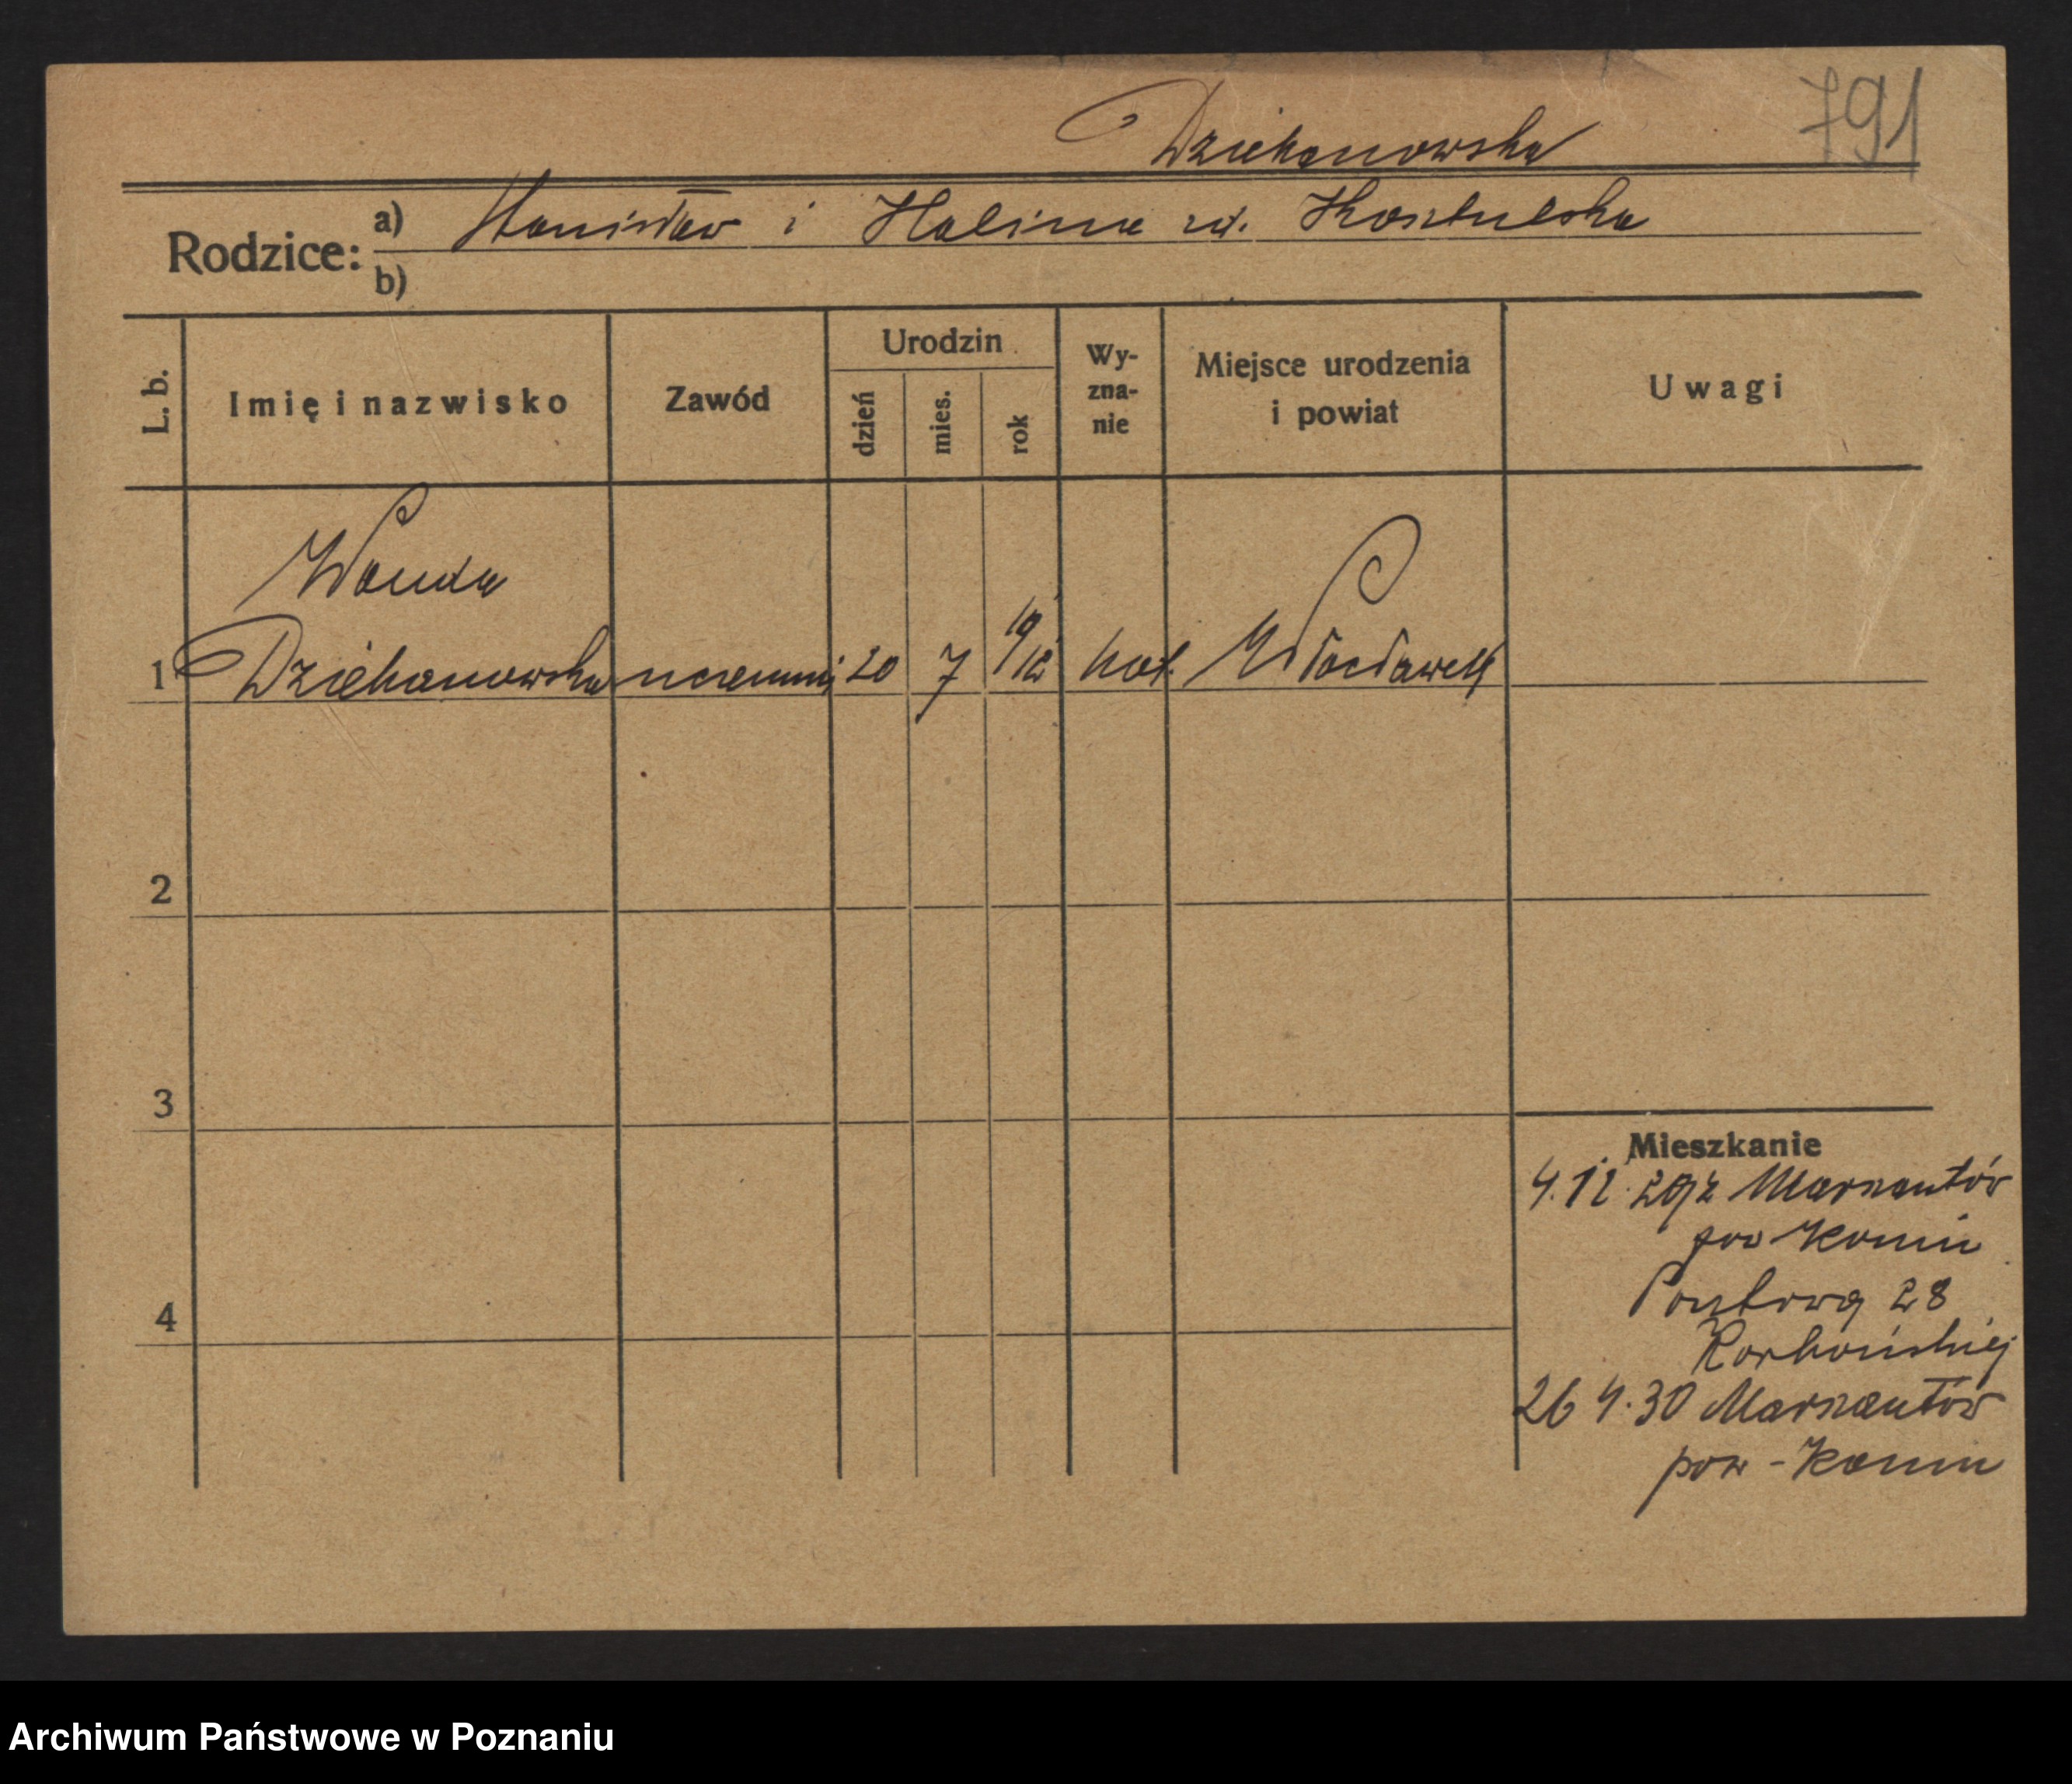 791
Dziekanowska
Rodzice: a) Stanisław i Halina zd. Kosztulska
b)
L. b. Imię i nazwisko Zawód Urodzin dzień mies. rok Wyznanie Miejsce urodzenia i powiat Uwagi
Wanda
1 Dziekanowska 20 7 19/12 kat. Włocławek
2
3
4
Mieszkanie
4.12. Marzantów
pow Konin
Pocztową 28
26 4.30 Marzantów
pow - Konin
Archiwum Państwowe w Poznaniu